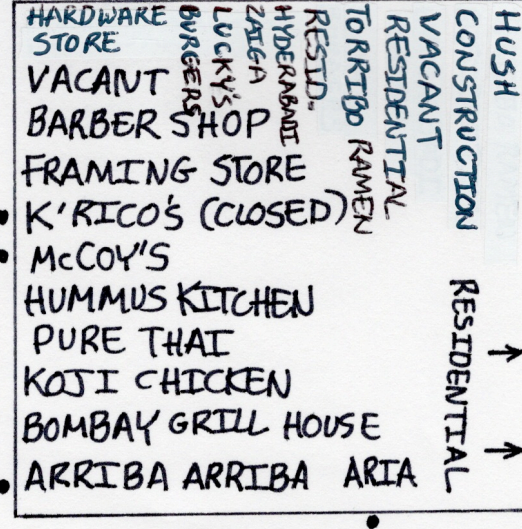 HARDWARE
STORE
VACANT
BARBER SHOP
FRAMING STORE
K'RICO'S (CLOSED)
McCOY'S
HUMMUS KITCHEN
PURE THAI
KOJI CHICKEN
BOMBAY GRILL HOUSE
ARRIBA ARRIBA ARIA
LUCKY'S
BURGERS
HYDERABADI
ZAIQA
RESID.
TORRIBO RAMEN
RESIDENTIAL
VACANT
CONSTRUCTION
HUSH
RESIDENTIAL